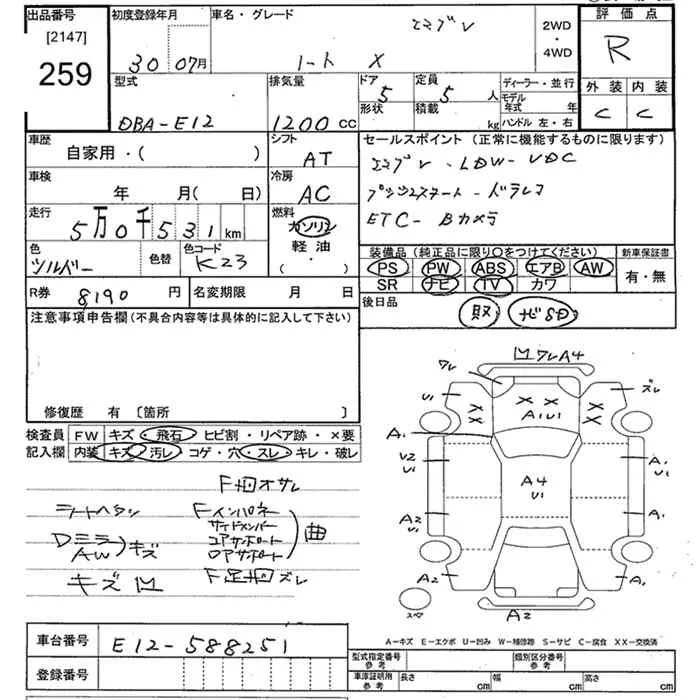 出品番号
[2147]
259
初度登録年月
30 07月
車名・グレード
エマブレ
ノート X
2WD
・
4WD
評価点
R
外装 内装
C C
型式
DBA-E12
排気量
1200 cc
ドア
5
形状
定員
5 人
積載
kg
ディーラー・並行
モデル
年式 年
ハンドル 左・右
車歴
自家用・( )
シフト
AT
車検
年 月( 日)
冷房
AC
走行
5万0千531 km
燃料
ガソリン
軽油
・
( )
色
シルバー
色替
色コード
K23
セールスポイント(正常に機能するものに限ります)
エマブレ・LDW-VDC
プッシュスタート-ドラレコ
ETC-Bカメラ
装備品(純正品に限り○をつけてください)
PS PW ABS エアB AW
SR ナビ TV カワ
新車保証書
有・無
R券 8190 円
名変期限 月 日
後日品
取 ナビSD
注意事項申告欄(不具合内容等は具体的に記入して下さい)
修復歴 有 〔箇所 〕
検査員
記入欄
FW キズ・飛石・ヒビ割・リペア跡・×要
内装 キズ・汚レ・コゲ・穴・スレ・キレ・破レ
シートヘタリ
Dミラー
AW
キズ
キズ凹
F凹オサレ
Fインパネ
サイドメンバー
コアサポート
ロアサポート
曲
F足凹ズレ
凹ワレA4
ワレ
U1
ズレ
×
×
×
×
×
A1U1
A1
U2
U1
A4
U1
A1
U1
A2
U1
A1
A2
A1
スペア
A2
A-キズ E-エクボ U-凹み W-補修跡 S-サビ C-腐食 XX-交換済
車台番号
E12-588251
登録番号
型式指定番号
参考
類別区分番号
参考
車庫証明用
参考
長さ cm
幅 cm
高さ cm